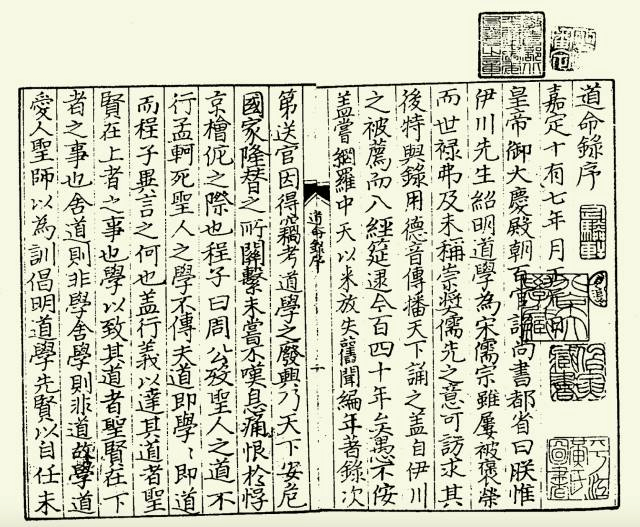 道命錄序
嘉定十有七年月
皇帝御大慶殿朝百官詔尚書都省曰朕惟
伊川先生紹明道學為宋儒宗雖屢被褒榮
而世祿弗及未稱崇奬儒先之意可訪求其
後特與錄用德音傳播天下誦之盖自伊川
之被薦而入經筵逮今百四十年矣愚不佞
盖嘗網羅中天以來放失舊聞編年著錄次
道命錄序
第送官因得竊考道學之廢興乃天下安危
國家隆替之所關繫未嘗不嘆息痛恨於惇
京檜侂之際也程子曰周公殁聖人之道不
行孟軻死聖人之學不傳夫道即學學即道
而程子異言之何也盖行義以達其道者聖
賢在上者之事也學以致其道者聖賢在下
者之事也舍道則非學舍學則非道故學道
愛人聖師以為訓倡明道學先賢以自任未
平江黃氏圖書